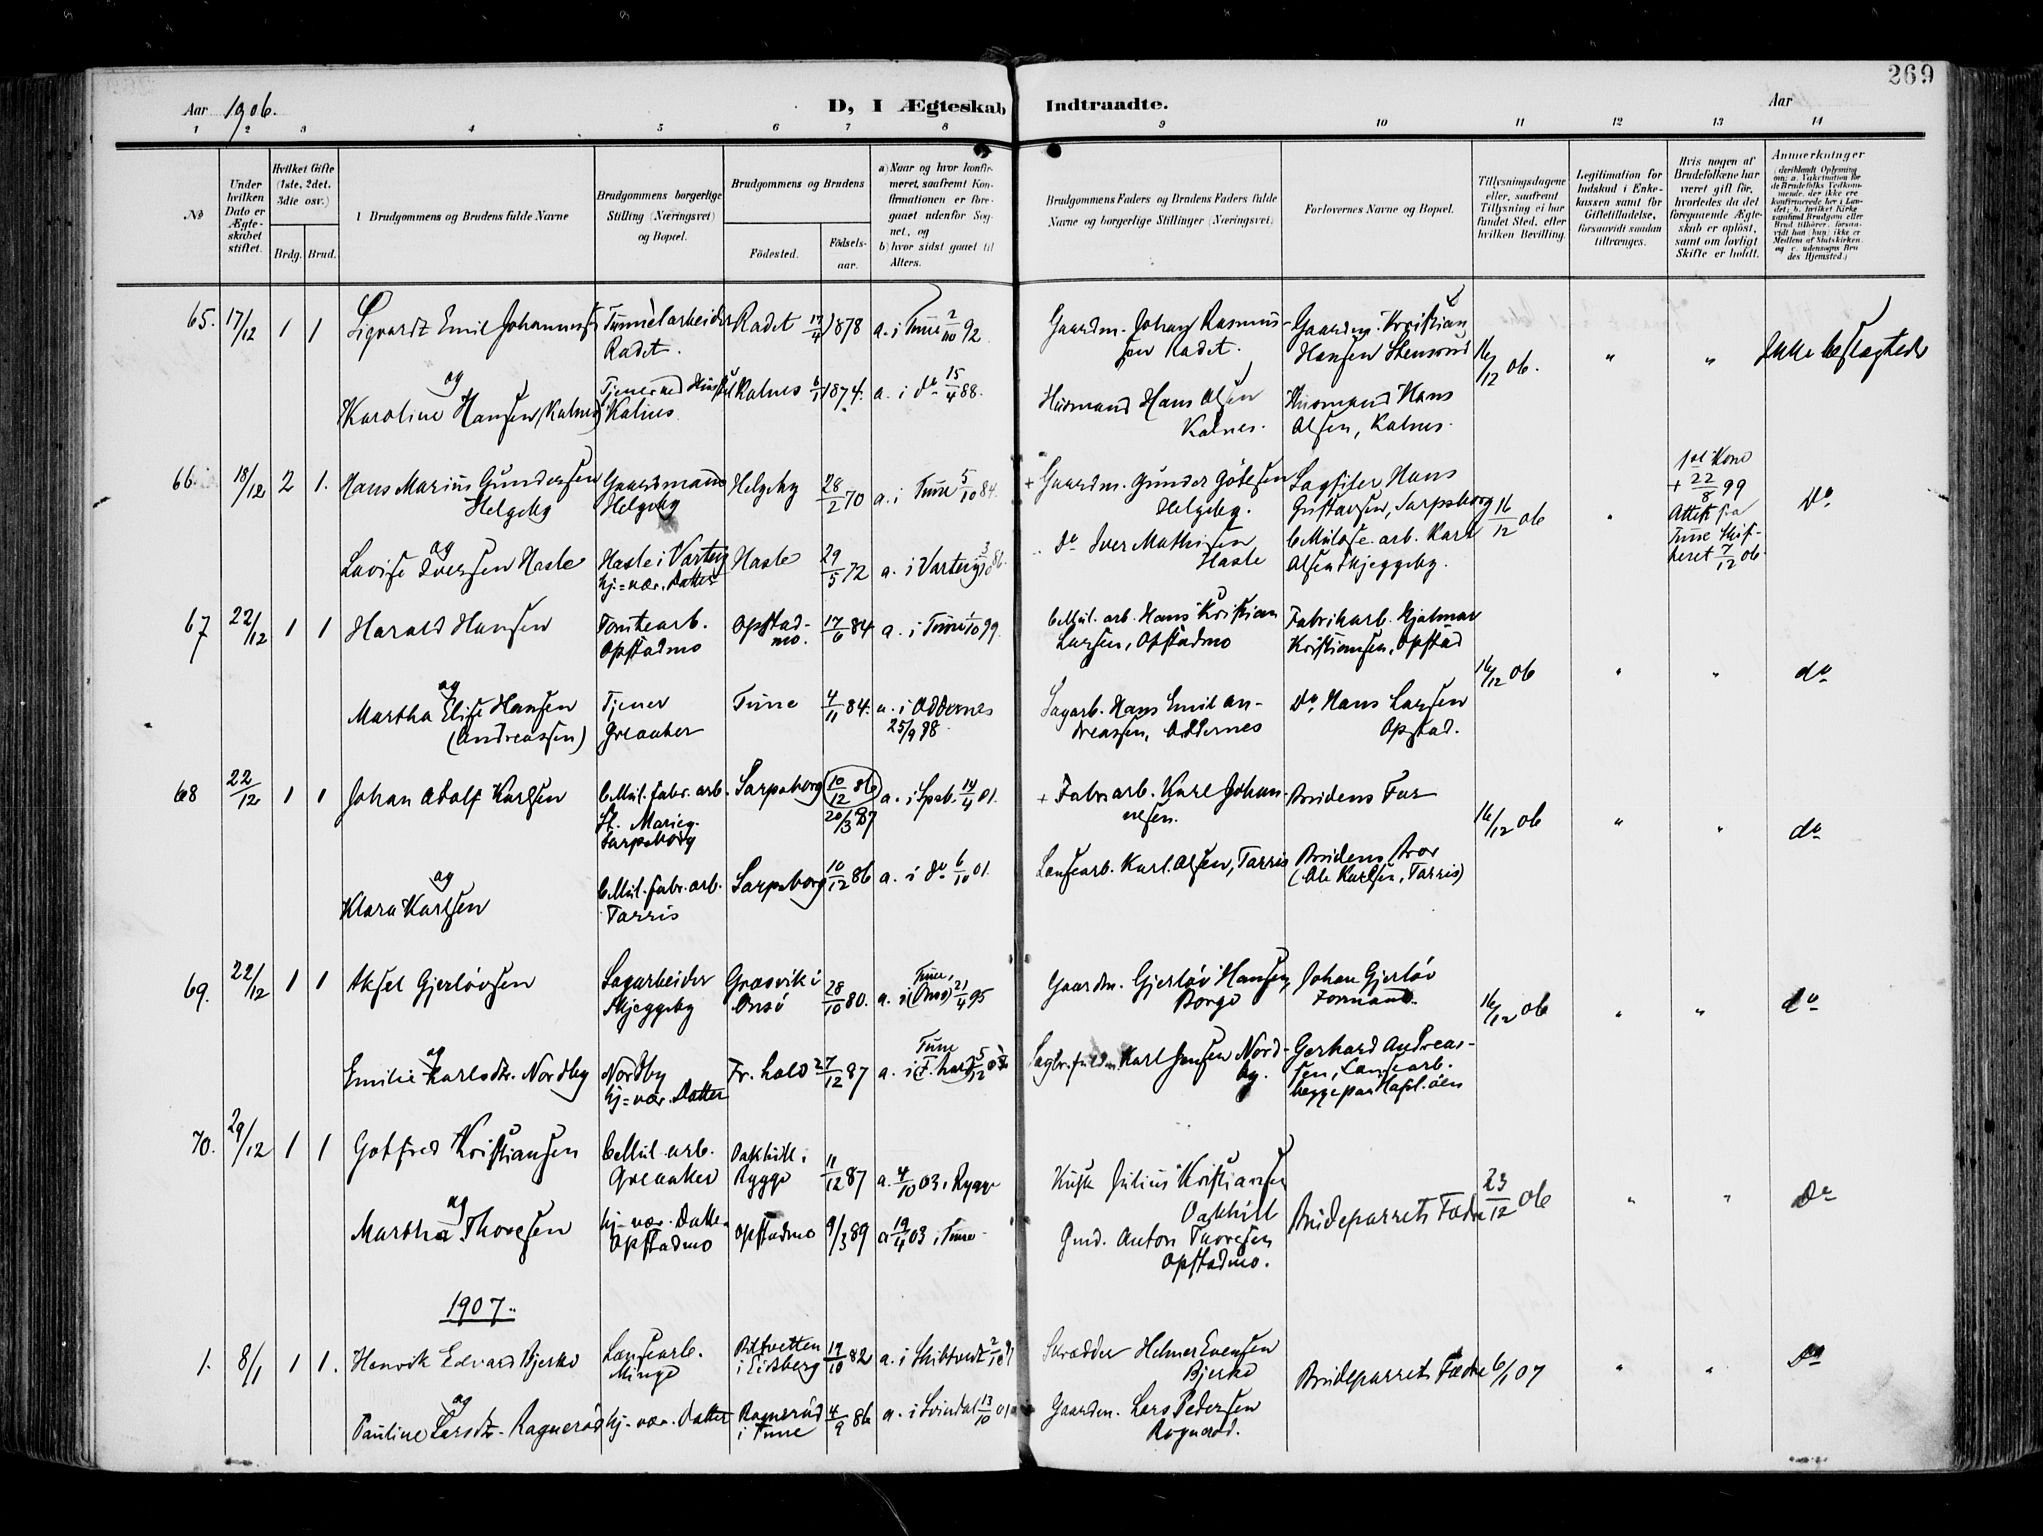 269
Aar 1906.
D, I Ægteskab Indtraadte.
Aar
1 2 3 4 5 6 7 8 9 10 11 12 13 14
No
Under hvilken Dato er Ægteskabet stiftet.
Hvilket Gifte (1ste, 2det, 3die osv.)
Brdg. Brud.
Brudgommens og Brudens fulde Navne
Brudgommens borgerlige Stilling (Næringsvei) og Bopæl.
Brudgommens og Brudens
Fødested.
Fødselsaar.
a) Naar og hvor konfirmeret, saafremt Konfirmationen er foregaaet udenfor Sognet, og
b) hvor sidst gaaet til Alters.
Brudgommens Faders og Brudens Faders fulde Navne og borgerlige Stillinger (Næringsvei)
Forlovernes Navne og Bopæl.
Tillysningsdagene eller, saafremt Tillysning ei har fundet Sted, efter hvilken Bevilling.
Legitimation for Indskud i Enkekassen samt for Giftetilladelse, forsaavidt saadan tiltrænges.
Hvis nogen af Brudefolkene har været gift før, hvorledes da det foregaaende Ægteskab er opløst, samt om lovligt Skifte er holdt.
Anmerkninger
65. 17/12 1 1 Sigvardt Emil Johannesen Tunnelarbeider Radet 17/4 1878 a. i Tune 2/10 92 Gaardm. Johan Rasmus- Gaardm. Kristian
Radet. sen Radet. Hansen Stensrud 16/12 06. " " Ikke beslægtede
og
Karoline Hansen (Kalnes) Kalnes Kalnes 6/1 1874. a. i do 15/4 88. Husmand Hans Olsen Husmand Hans
Kalnes. Olsen, Kalnes.
66. 18/12 2 1. Hans Marius Gundersen Gaardmand Helgeby 28/2 70 a. i Tune 5/10 84. + Gaardm. Gunder Helgeby. Hans
Helgeby Helgeby Gustavsen, Sarpsborg 16/12 06 " 1ste Kone + 22/8 99 Attest fra Tune 7/12 06. Do
og
Lovise Iversen Hasle Hasle i Varteig Hasle 29/5 72 a. i Varteig Do Iver Mathisen Cellulose. arb. Karl
hj=vær. Datter Hasle Olsen Skjeggeby.
67 22/12 1 1 Harald Hansen Tomtearb. Opstad- 17/6 84 a. i Tune 1/10 99. Cellul. arb. Hans Kristian Fabrikarb. Hjalmar
Opstadmo mo. Larsen, Opstadmo Kristiansen, Opstad
16/12 06 " " do
og
Martha Elise Hansen Tjener Tune 4/11 84. a. i Oddernes Sagarb. Hans Emil An- Do, Hans Larsen
(Andreassen) Greaaker 25/9 98. dreassen, Oddernes Opstad.
68 22/12 1 1 Johan Adolf Karlsen Cellul. fabr. arb. Sarpsborg 10/12 86 a. i Spsb. 14/4 01. + Fabr. arb. Karl Johan- Brudens Far
St. Marieg. 20/3 87 nesen. 16/12 06 " " do
Sarpsborg
og
Klara Karlsen Cellul. fabr. arb. Sarpsborg 10/12 86 a. i do 6/10 01. Lansearb. Karl Olsen, Tarris Brudens Bror
Tarris (Ole Karlsen, Tarris)
69. 22/12 1 1 Aksel Gjerløvsen Sagarbeider Græsvik i 28/10 80. a. i Tune, (Onsø) 21/4 95 Gaardm. Gjerløv Hansen Johan Gjerløv
Skjeggeby Onsø Borge Formand. 16/12 06 " " do
og
Emilie Karlsdtr. Nordby Nordby Fr. hald 27/12 87 a. i Tune Karl Jensen Nord- Gerhard Andreas-
hj=vær. Datter by. sen, Lansearb.
70. 29/12 1 1 Gotfred Kristiansen Cellul. arb. i 11/12 87 a. 4/10 03 i Rygge Kusk Julius Kristiansen
Greaaker Rygge 23/12 06 " " Do
og
Martha Thoresen hj-vær. Datter Opstadmo 9/3 89 a 19/4 03 i Tune Anton Thoresen Brudeparrets Fædre
Opstadmo Opstadmo.
1907.
1. 8/1 1 1. Henrik Edvard Bjerke Lansearb. i Eidsberg 19/10 82 a. i Skibtvedt Skrædder Helmer Evensen
Minge Bjerke Brudeparrets Fædre 6/1 07 " " Do
og
Pauline Larsdtr. Ragnerød hj. vær. Datter Ragnerud 4/9 86 a. i Svindal 13/10 01 Gaardm. Lars Pedersen
i Tune Ragnerød.